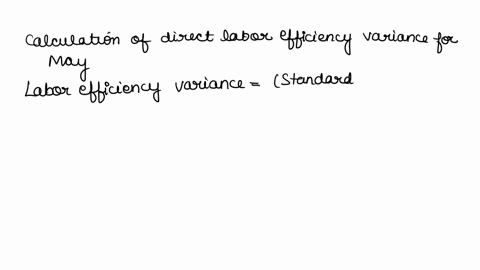 Calculation of direct labor efficiency variance for
May
Labor efficiency variance = (Standard